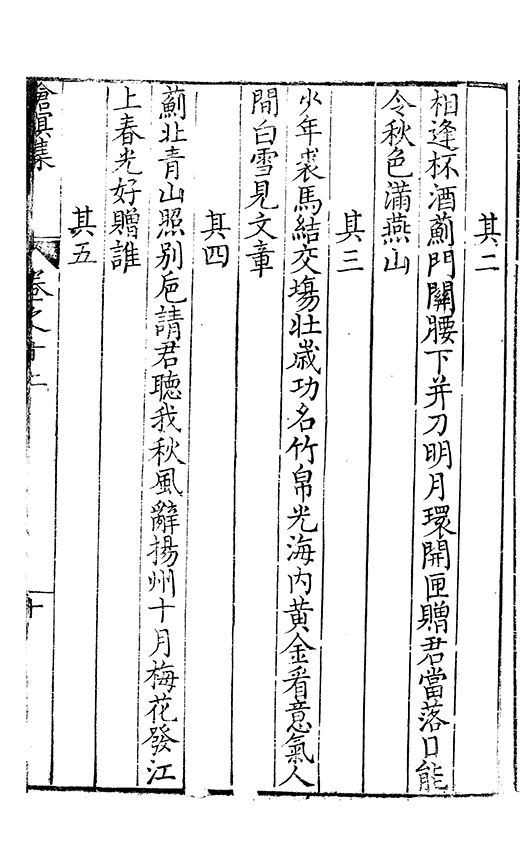 其二
相逢杯酒薊門關腰下并刀明月環開匣贈君當落日能
令秋色滿燕山
其三
少年裘馬結交塲壯歲功名竹帛光海内黄金看意氣人
間白雪見文章
其四
薊北青山照别巵請君聽我秋風辭揚州十月梅花發江
上春光好贈誰
其五
滄溟集
卷之十二
十